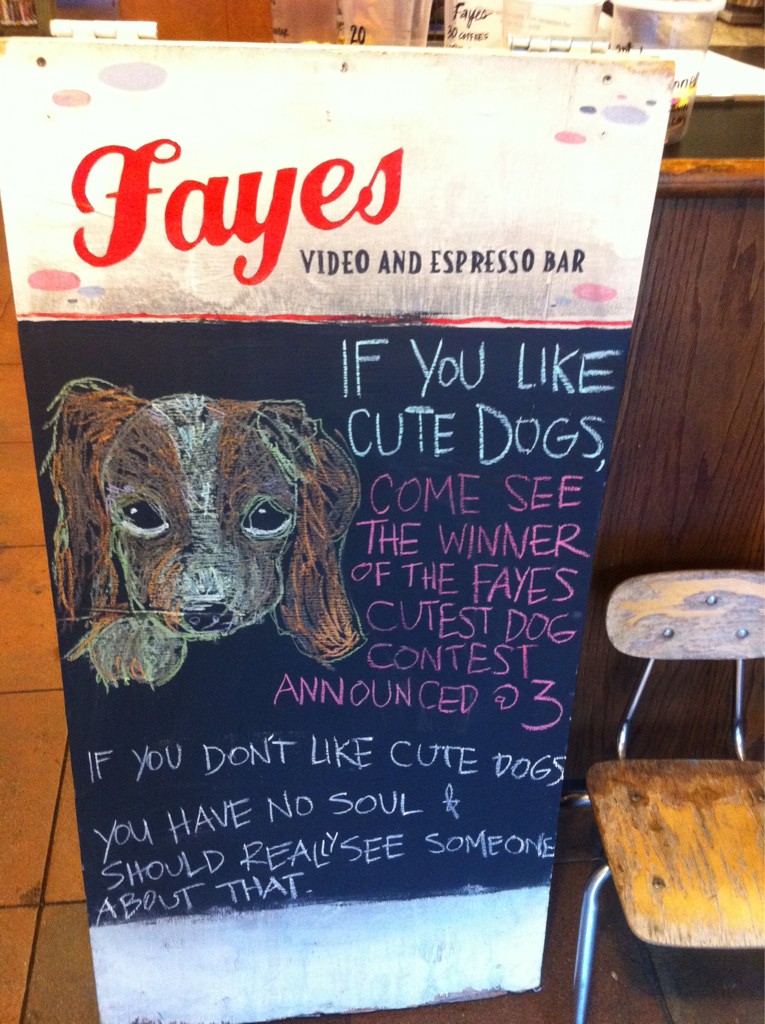 20
Fayes
30 COFFEES
Fayes
VIDEO AND ESPRESSO BAR
IF YOU LIKE
CUTE DOGS,
COME SEE
THE WINNER
OF THE FAYES
CUTEST DOG
CONTEST
ANNOUNCED @ 3
IF YOU DON'T LIKE CUTE DOGS
YOU HAVE NO SOUL &
SHOULD REALLY SEE SOMEONE
ABOUT THAT.